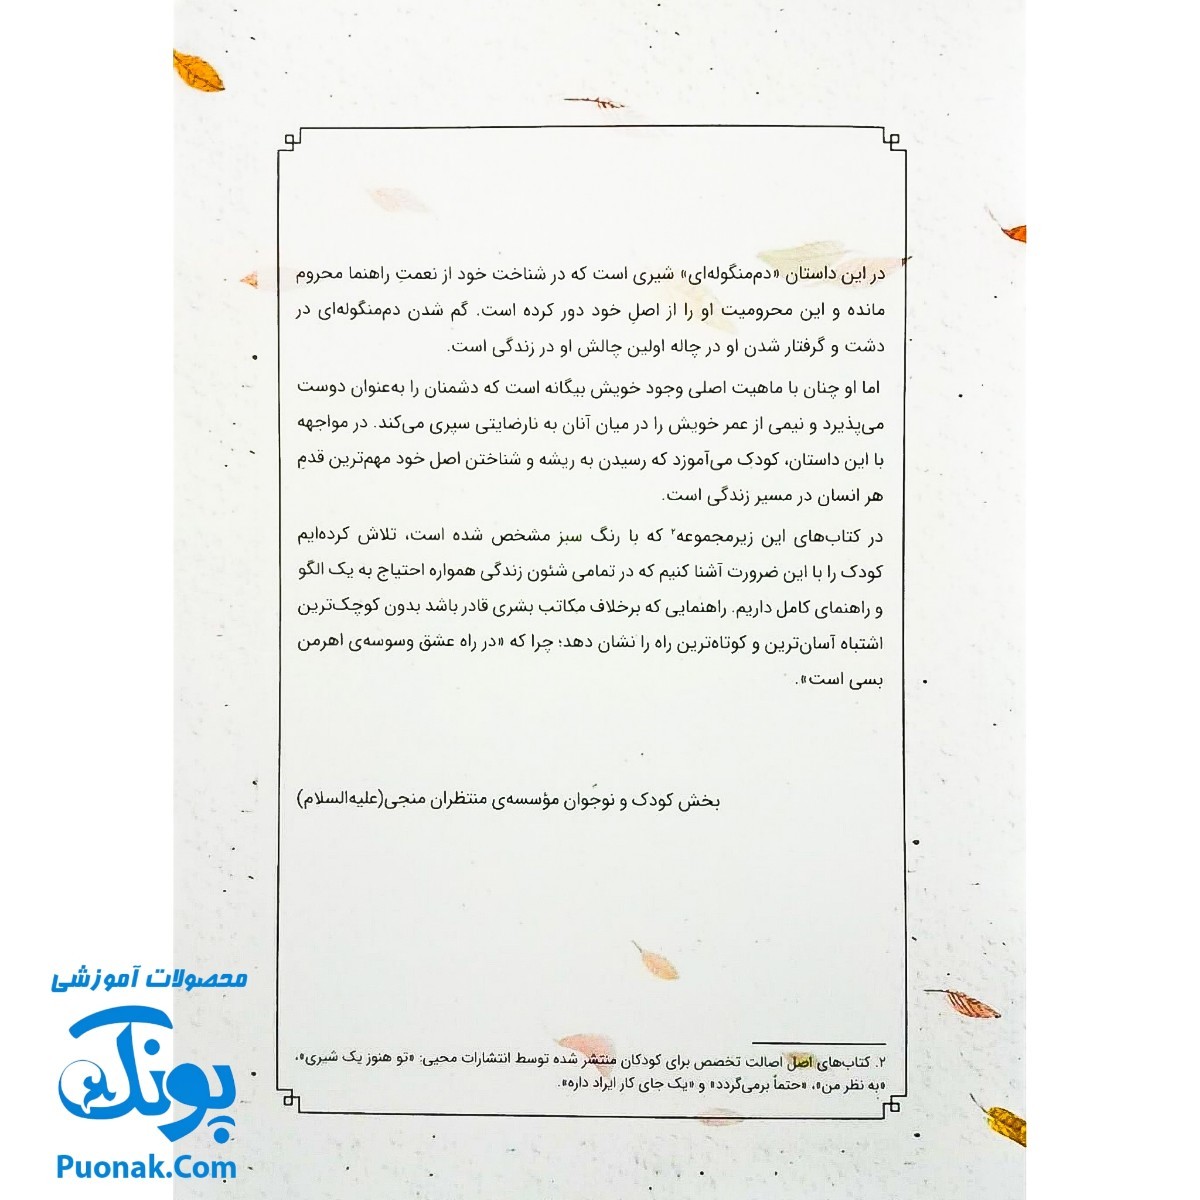 در این داستان «دم‌منگوله‌ای» شیری است که در شناخت خود از نعمتِ راهنما محروم
مانده و این محرومیت او را از اصلِ خود دور کرده است. گم شدن دم‌منگوله‌ای در
دشت و گرفتار شدن او در چاله اولین چالش او در زندگی است.
اما او چنان با ماهیت اصلی وجود خویش بیگانه است که دشمنان را به‌عنوان دوست
می‌پذیرد و نیمی از عمر خویش را در میان آنان به نارضایتی سپری می‌کند. در مواجهه
با این داستان، کودک می‌آموزد که رسیدن به ریشه و شناختن اصل خود مهم‌ترین قدمِ
هر انسان در مسیر زندگی است.
در کتاب‌های این زیرمجموعه۲ که با رنگ سبز مشخص شده است، تلاش کرده‌ایم
کودک را با این ضرورت آشنا کنیم که در تمامی شئون زندگی همواره احتیاج به یک الگو
و راهنمای کامل داریم. راهنمایی که برخلاف مکاتب بشری قادر باشد بدون کوچک‌ترین
اشتباه آسان‌ترین و کوتاه‌ترین راه را نشان دهد؛ چرا که «در راه عشق وسوسه‌ی اهرمن
بسی است».
بخش کودک و نوجوان مؤسسه‌ی منتظران منجی(علیه‌السلام)
۲. کتاب‌های اصل اصالت تخصص برای کودکان منتشر شده توسط انتشارات محیی: «تو هنوز یک شیری»،
«به نظر من»، «حتماً برمی‌گردد» و «یک جای کار ایراد داره».
محصولات آموزشی
پونک
Puonak.Com